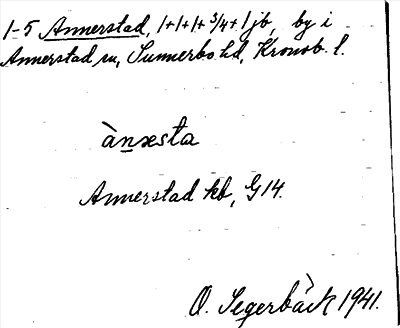 1-5 Annerstad, 1+1+1+3/4+1 jb, by i
Annerstad sn, Sunnerbo hd, Kronob. l.
ànxsta
Annerstad kb, G 14.
O. Segerbäck 1941.